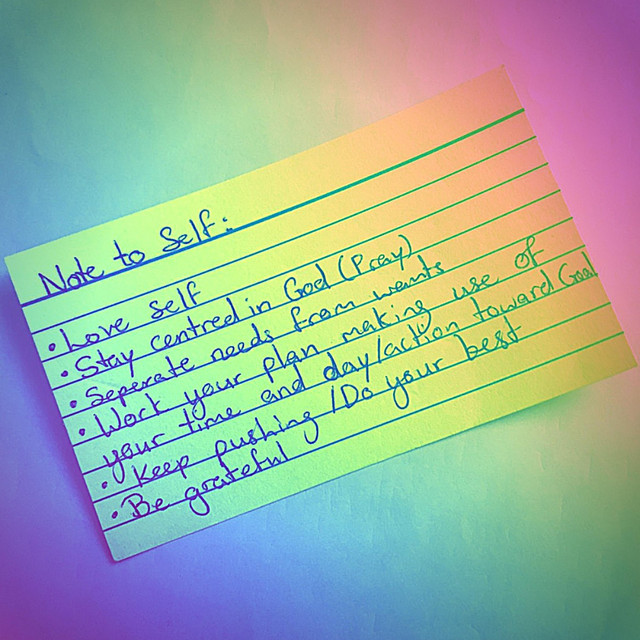 Note to Self:
• Love Self
• Stay centred in God (Pray)
• Seperate needs from wants
• Work your plan making use of
your time and day/action toward Goal
• Keep pushing /Do your best
• Be grateful